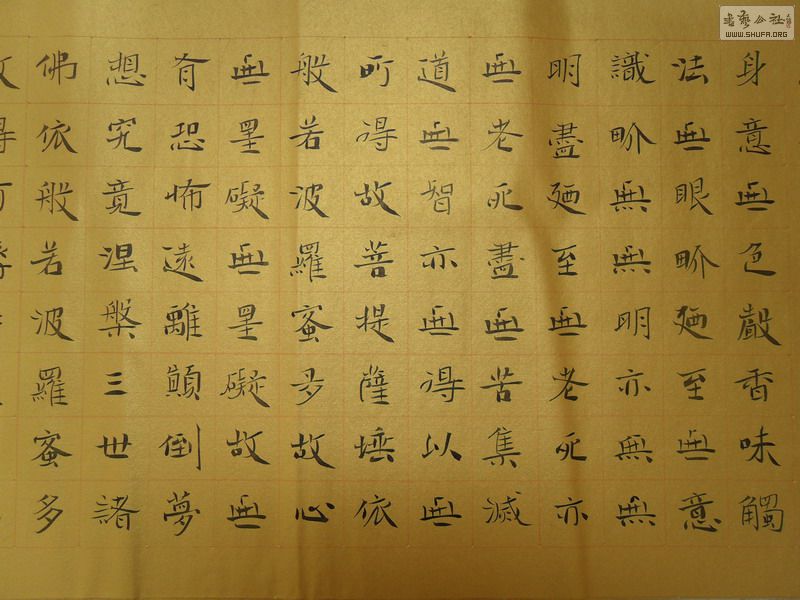 身意無色聲香味觸
法無眼畍廼至無意
識畍無無明亦無無
明盡廼至無老死亦
無老死盡無苦集滅
道無智亦無得以無
所得故菩提薩埵依
般若波羅蜜多故心
無罣礙無罣礙故無
有恐怖遠離顛倒夢
想究竟涅槃三世諸
佛依般若波羅蜜多
書藝公社
WWW.SHUFA.ORG